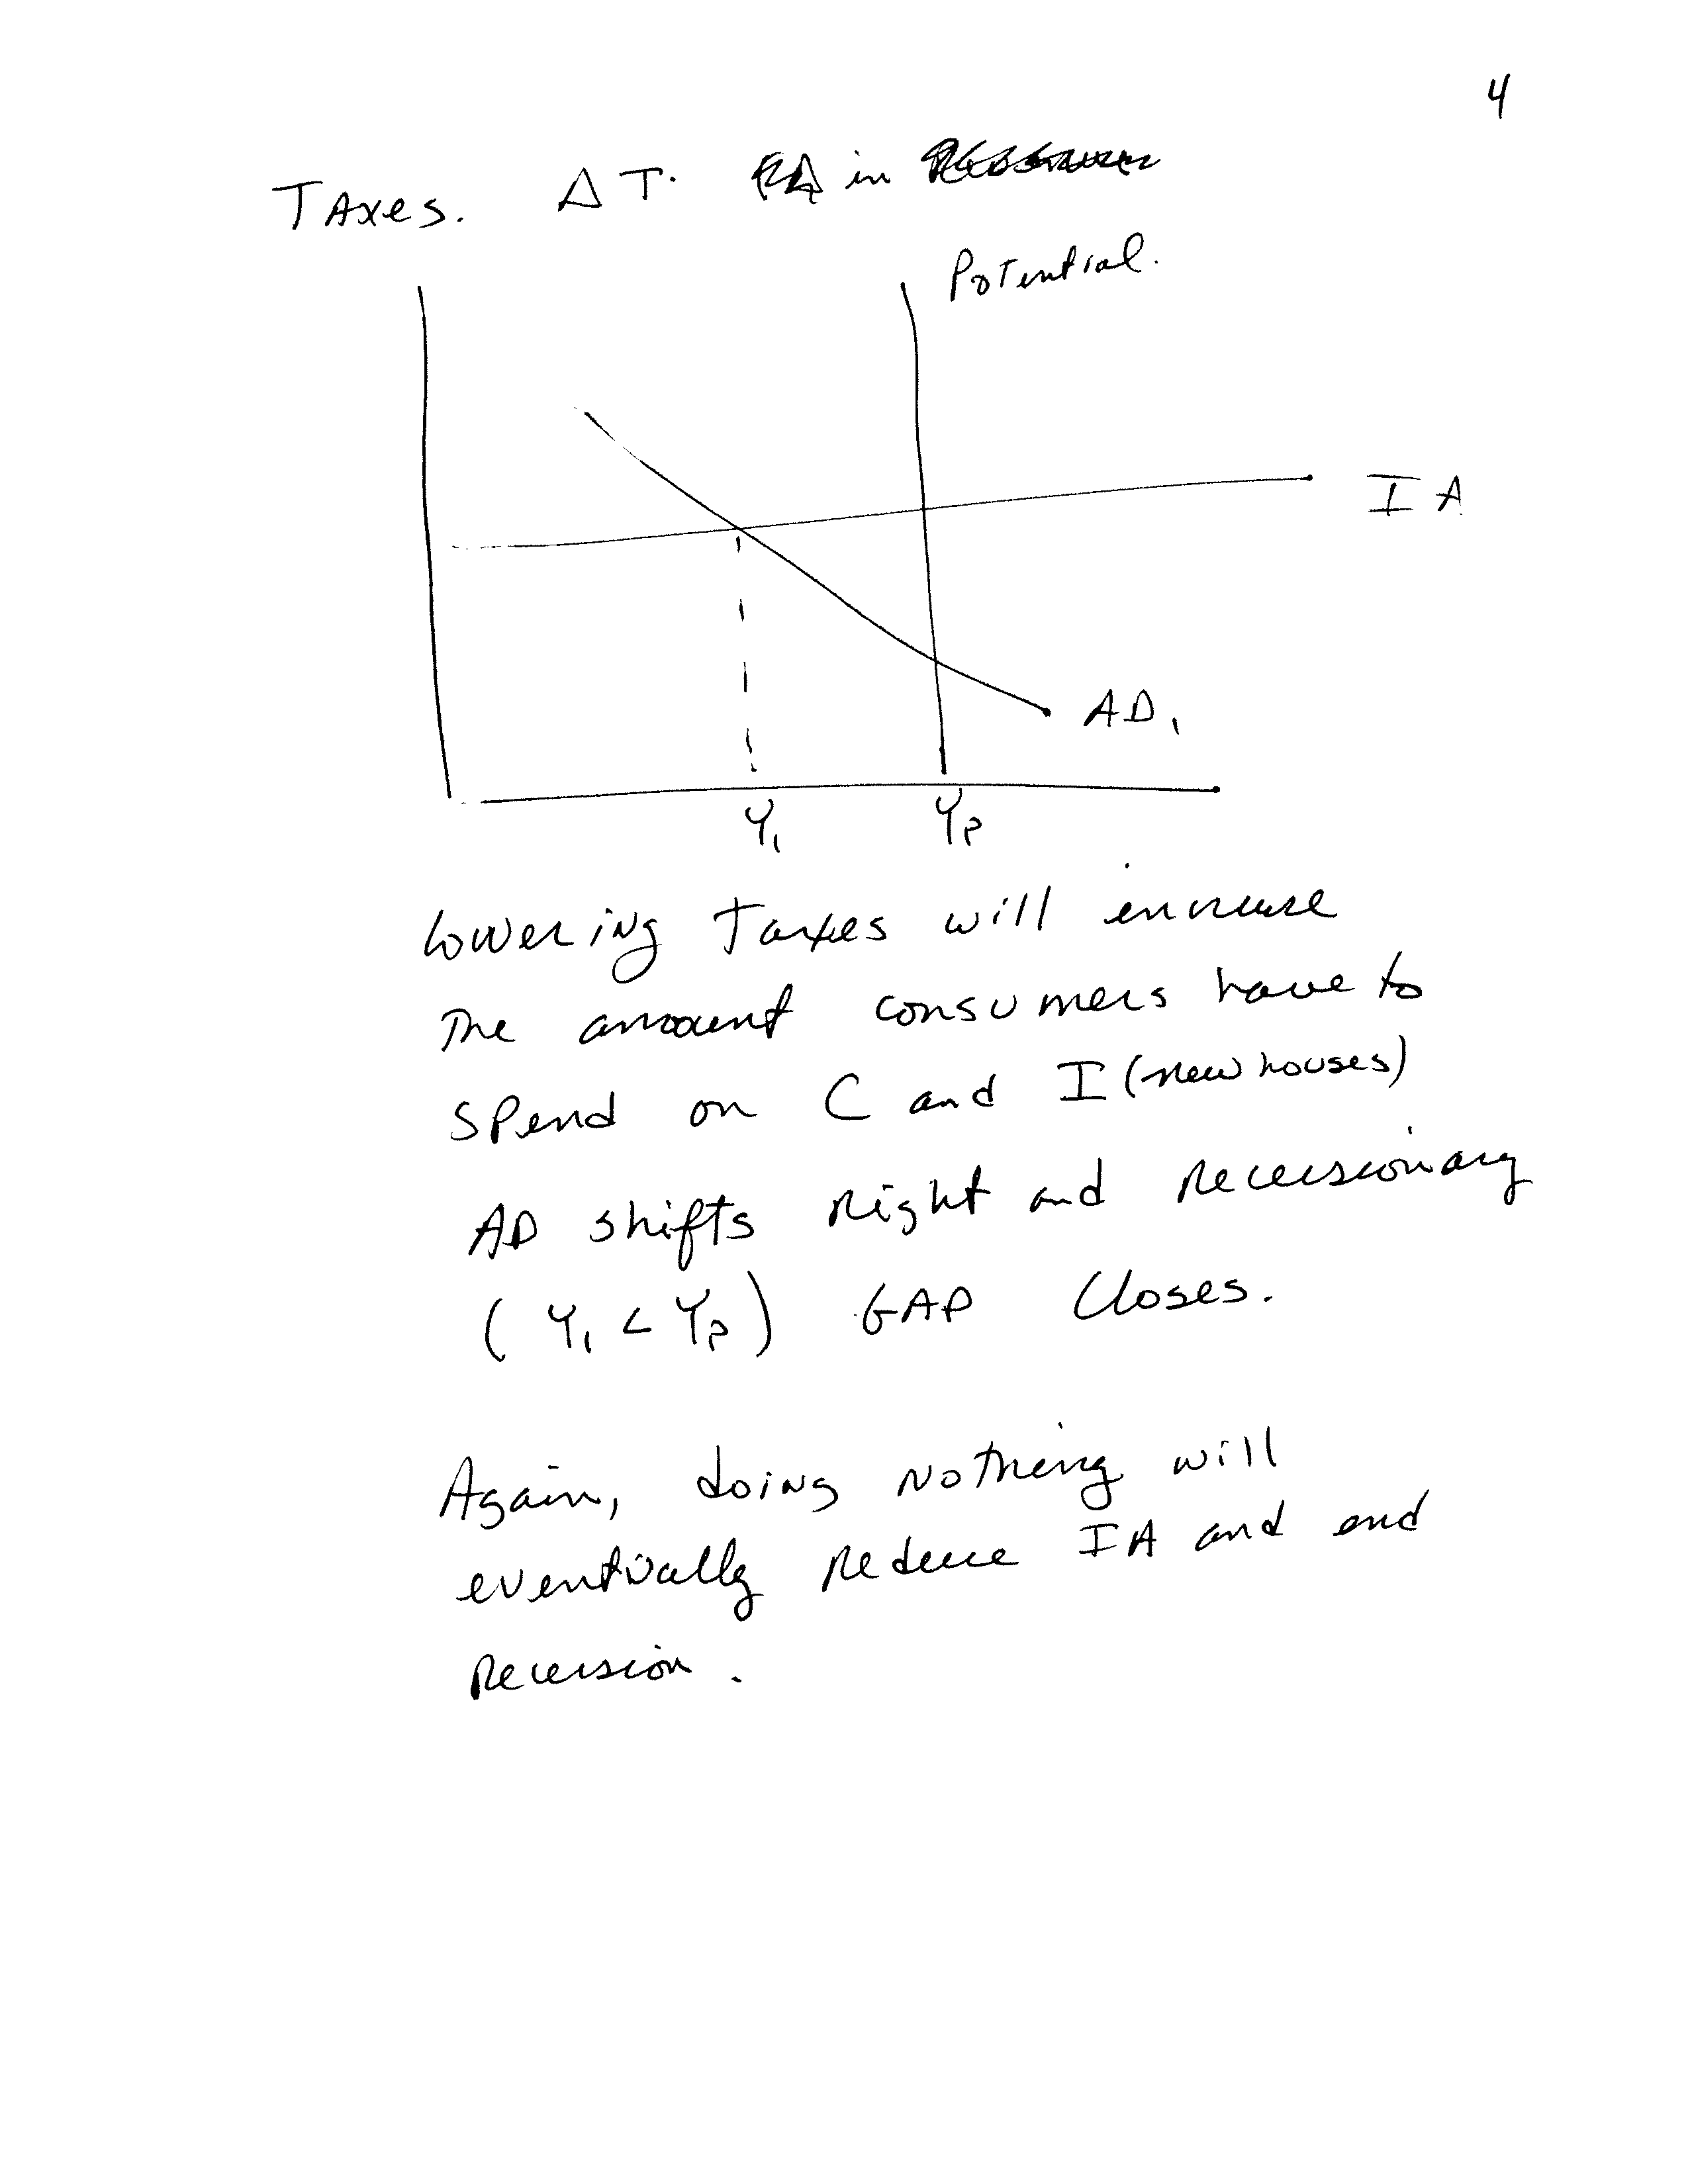 4
TAxes. ΔT. in
Potential.
IA
AD1
Y1 YP
lowering Taxes will increase
The amount consumers have to
spend on C and I (new houses)
AD shifts Right and Recessionary
(Y1 < YP) GAP Closes.
Again, doing nothing will
eventually Reduce IA and end
Recession.